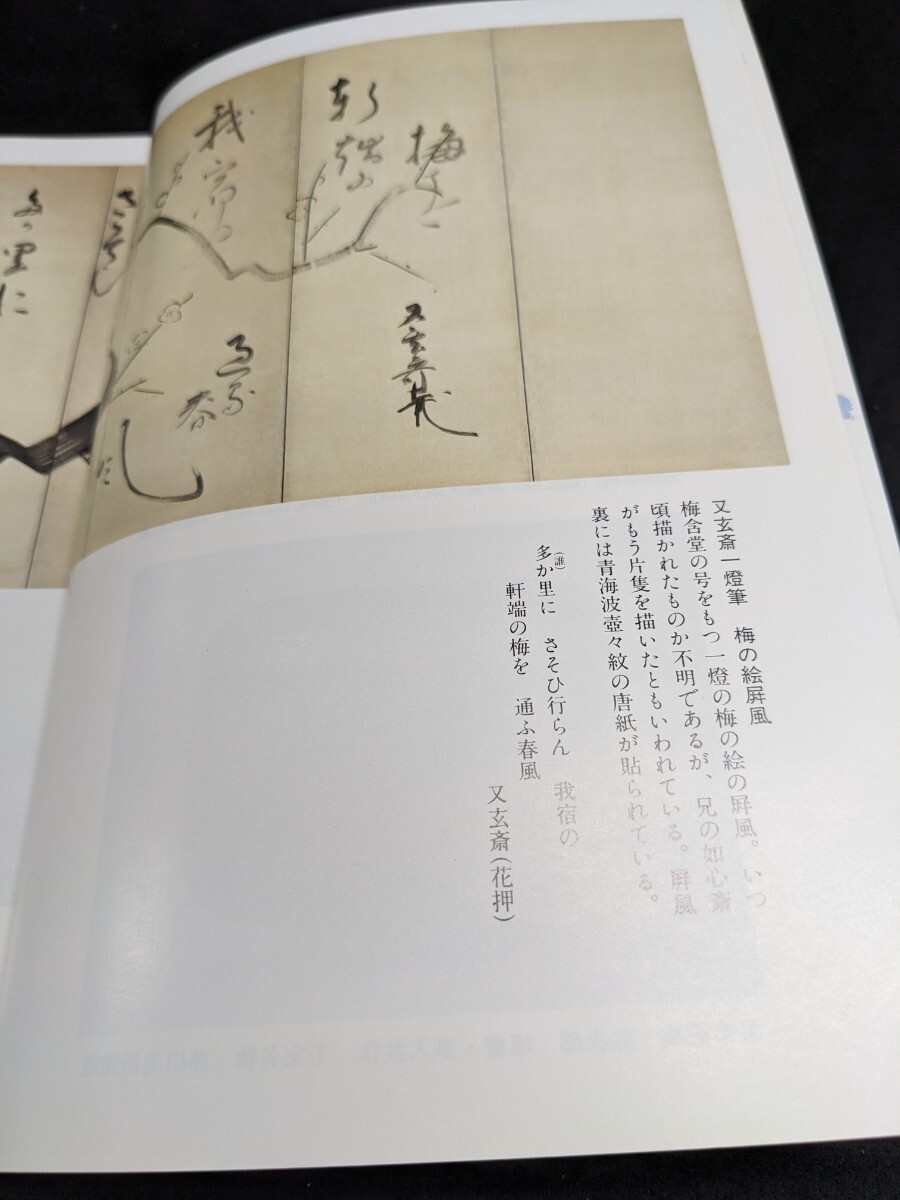 梅を
軒端の
我宿の
通ふ
春
風
さそひ
多か里に
又玄斎
又玄斎一燈筆　梅の絵屏風
梅含堂の号をもつ一燈の梅の絵の屏風。いつ
頃描かれたものか不明であるが、兄の如心斎
がもう片隻を描いたともいわれている。屏風
裏には青海波壺々紋の唐紙が貼られている。
(誰)
多か里に　さそひ行らん　我宿の
軒端の梅を　通ふ春風
又玄斎(花押)